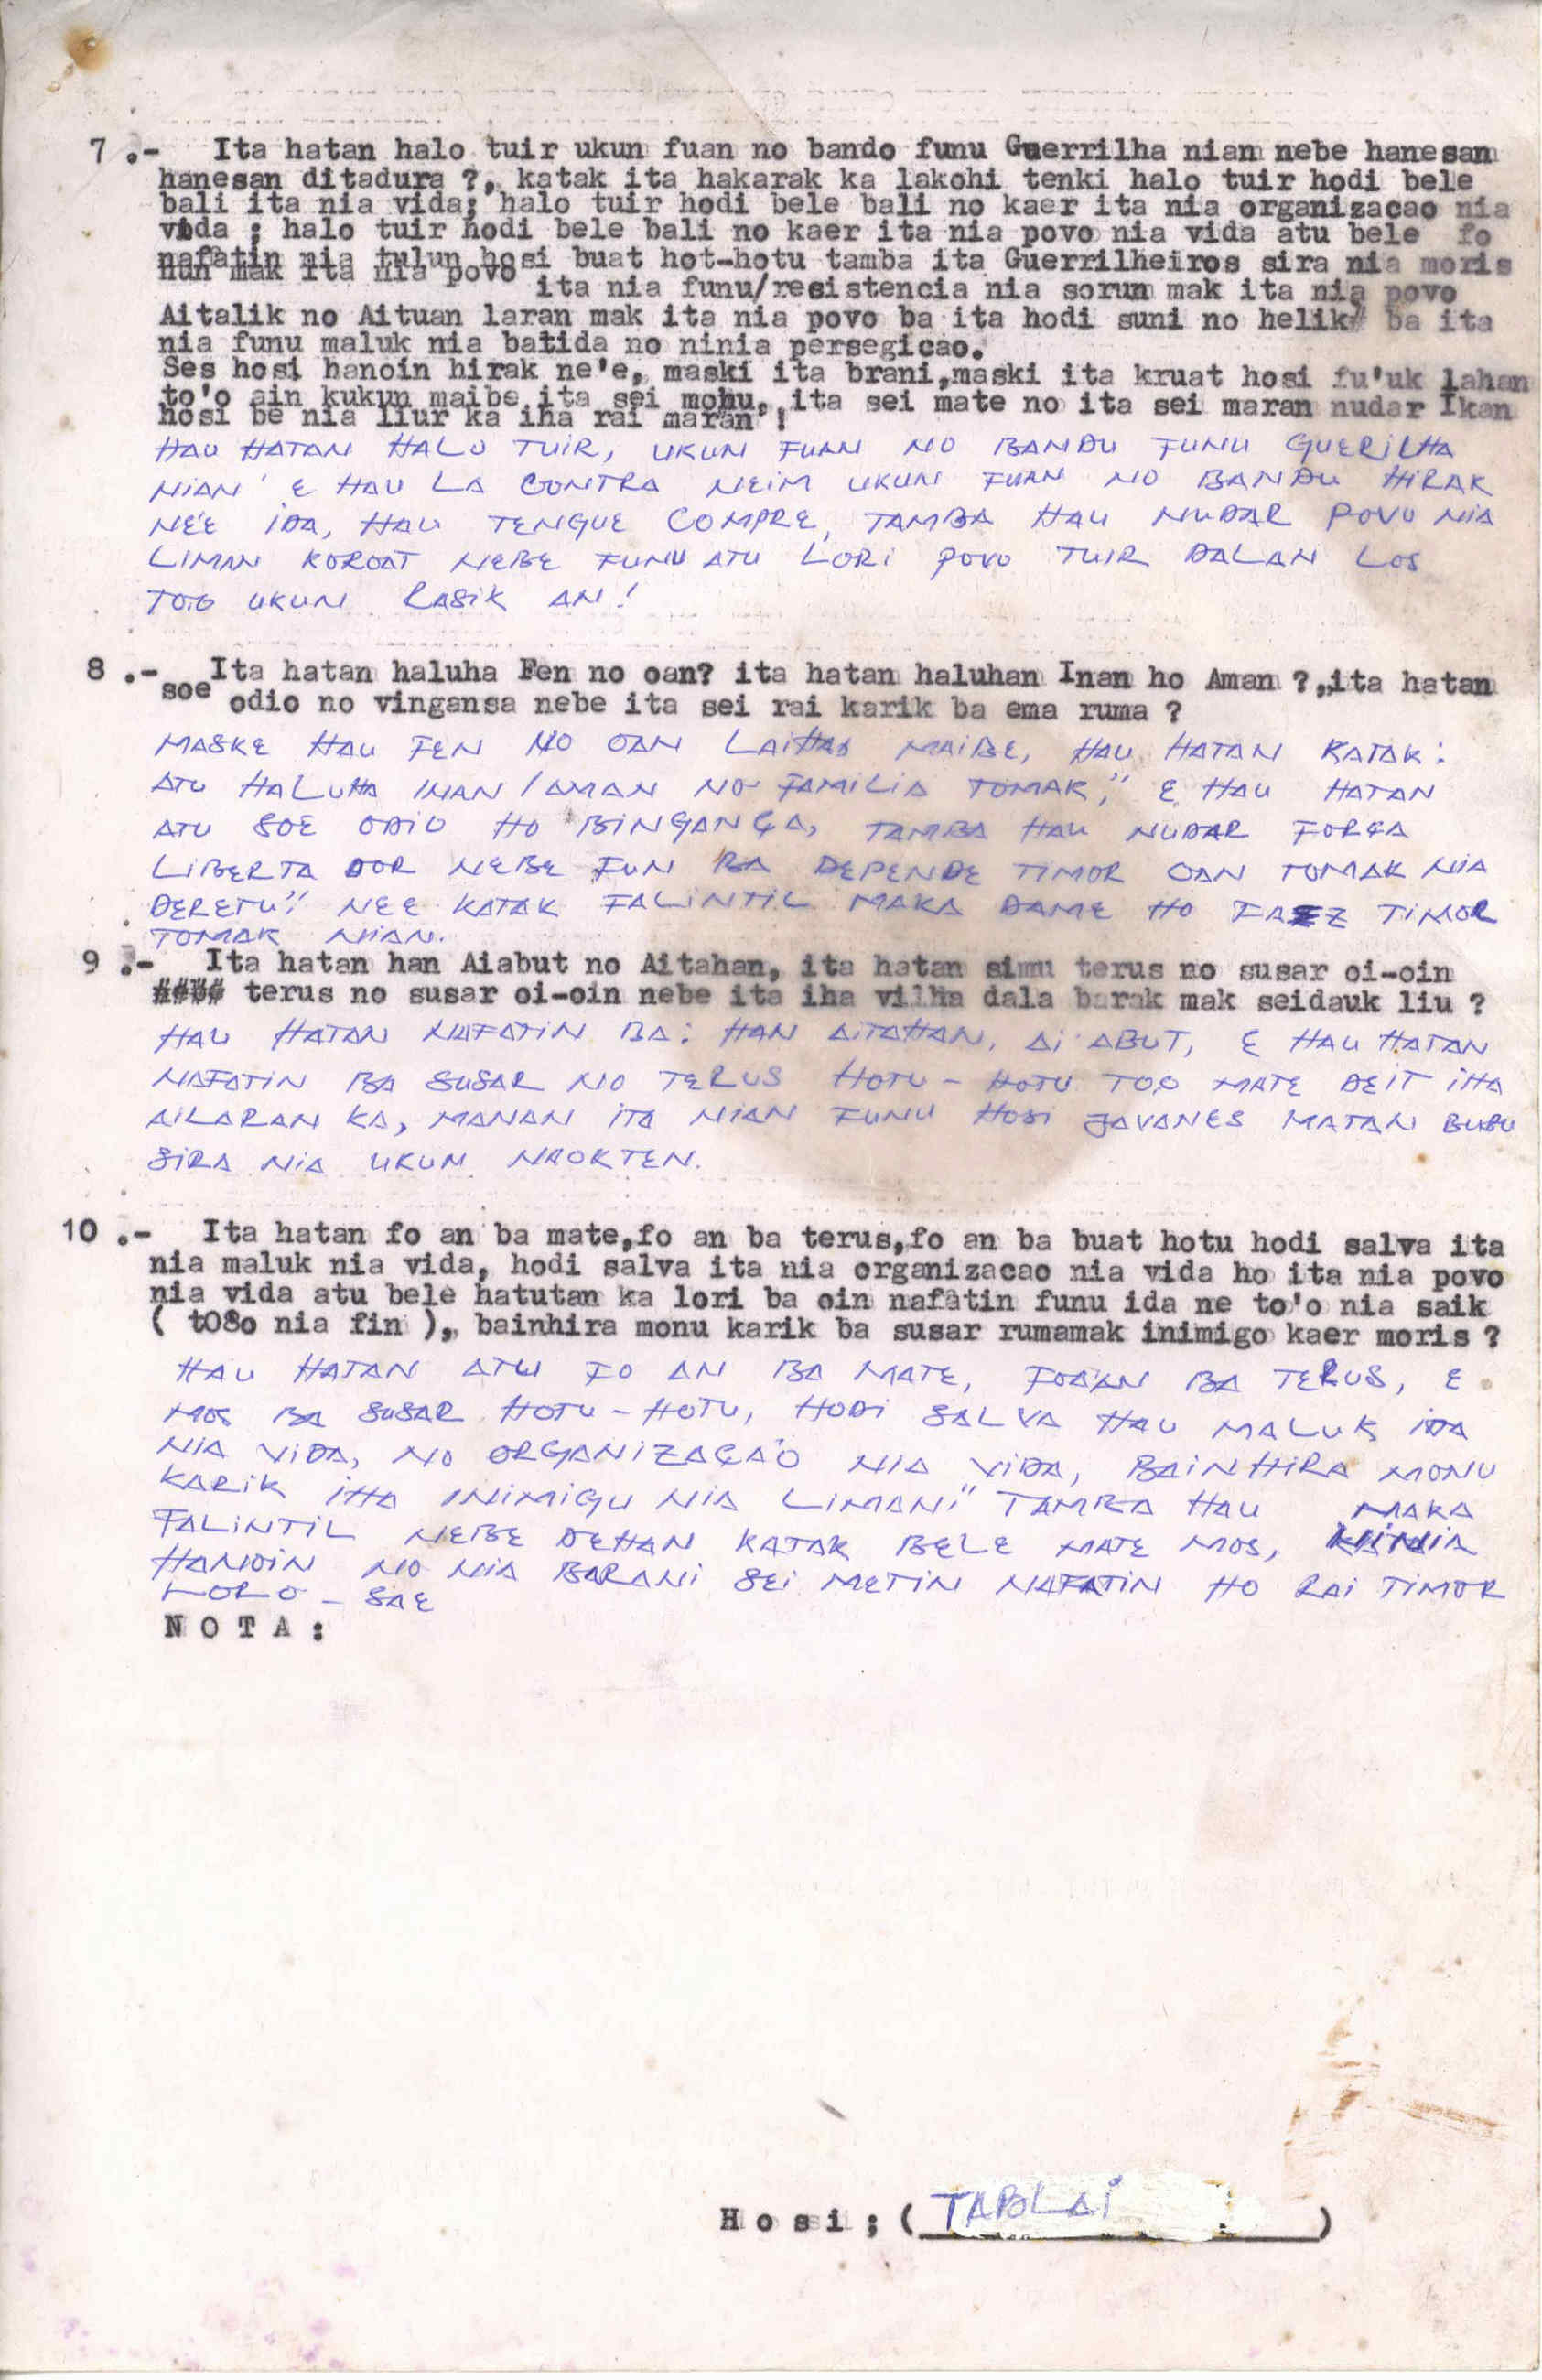 7 .- Ita hatan halo tuir ukun fuan no bando funu Guerrilha nian nebe hanesan
hanesan ditadura ?, katak ita hakarak ka lakohi tenki halo tuir hodi bele
bali ita nia vida; halo tuir hodi bele bali no kaer ita nia organizacao nia
vida ; halo tuir hodi bele bali no kaer ita nia povo nia vida atu bele fo
nafatin nia tulun hosi buat hot-hotu tamba ita Guerrilheiros sira nia moris
nun mak ita nia povo
ita nia funu/resistencia nia sorun mak ita nia povo
Aitalik no Aituan laran mak ita nia povo ba ita hodi suni no helik ba ita
nia funu maluk nia batida no ninia persegicao.
Ses hosi hanoin hirak ne'e, maski ita brani,maski ita kruat hosi fu'uk lahan
to'o ain kukun maibe ita sei mohu, ita sei mate no ita sei maran nudar Ikan
hosi be nia liur ka iha rai maran !
HAU HATAN HALO TUIR, UKUN FUAN NO BANDU FUNU GUERILHA
NIAN' E HAU LA CONTRA NEIM UKUN FUAN NO BANDU HIRAK
NE'E IDA, HAU TENGUE COMPRE, TAMBA HAU NUDAR POVU NIA
LIMAN KOROAT NEBE FUNU ATU LORI POVO TUIR DALAN LOS
TO.O UKUN RASIK AN!
8 .- Ita hatan haluha Fen no oan? ita hatan haluhan Inan ho Aman ?,,ita hatan
soe odio no vingansa nebe ita sei rai karik ba ema ruma ?
MASKE HAU FEN NO OAN LAIHAS MAIBE, HAU HATAN KATAK:
ATU HALUHA INAN / AMAN NO FAMILIA TOMAK," E HAU HATAN
ATU SOE ODIO HO BINGANÇA, TAMBA HAU NUDAR FORÇA
LIBERTA DOR NEBE FUN BA DEPENDE TIMOR OAN TOMAK NIA
DERETU". NEE KATAK FALINTIL MAKA DAME HO FAEZ TIMOR
TOMAK NIAN.
9 .- Ita hatan han Aiabut no Aitahan, ita hatan simu terus no susar oi-oin
#### terus no susar oi-oin nebe ita iha vilha dala barak mak seidauk liu ?
HAU HATAN NAFATIN BA: HAN AITAHAN, AI ABUT, E HAU HATAN
NAFATIN BA SUSAR NO TERUS HOTU - HOTU TO,O MATE DEIT IHA
AILARAN KA, MANAN ITA NIAN FUNU HOSI JAVANES MATAN BUBU
SIRA NIA UKUN NAOKTEN.
10 .- Ita hatan fo an ba mate,fo an ba terus,fo an ba buat hotu hodi salva ita
nia maluk nia vida, hodi salva ita nia organizacao nia vida ho ita nia povo
nia vida atu bele hatutan ka lori ba oin nafatin funu ida ne to'o nia saik
( tOSo nia fin ),, bainhira monu karik ba susar rumamak inimigo kaer moris ?
HAU HATAN ATU FO AN BA MATE, FOAAN BA TERUS, E
MOS BA SUSAR HOTU - HOTU, HODI SALVA HAU MALUK IDA
NIA VIDA, NO ORGANIZAÇAÓ NIA VIDA, BAINHIRA MONU
KARIK IHA INIMIGU NIA LIMAN" TAMBA HAU MAKA
FALINTIL NEBE DEHAN KATAK BELE MATE MOS, NINIA
HANOIN NO NIA BARANI SEI METIN NAFATIN HO RAI TIMOR
LORO - SAE
N O T A :
H o s i ; ( TABLAI )